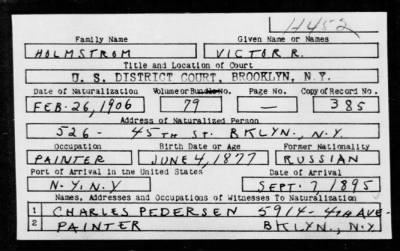 H452
Family Name Given Name or Names
HOLMSTROM VICTOR R.
Title and Location of Court
U. S. DISTRICT COURT, BROOKLYN, N.Y.
Date of Naturalization Volume or Bundle No. Page No. Copy of Record No.
FEB. 26, 1906 79 — 385
Address of Naturalized Person
526 - 45TH ST. BKLYN., N.Y.
Occupation Birth Date or Age Former Nationality
PAINTER JUNE 4, 1877 RUSSIAN
Port of Arrival in the United States Date of Arrival
N.Y. N.Y SEPT. 7, 1895
Names, Addresses and Occupations of Witnesses To Naturalization
1 CHARLES PEDERSEN 5914 - 4TH AVE.
2 PAINTER BKLYN., N.Y